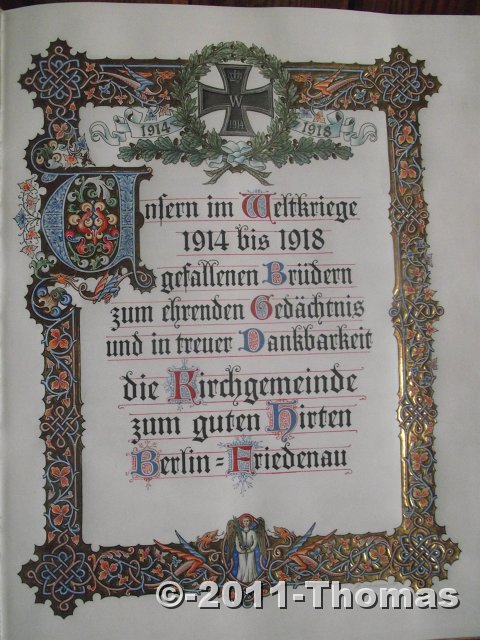 1914 1918
W
Unsern im Weltkriege
1914 bis 1918
gefallenen Brüdern
zum ehrenden Gedächtnis
und in treuer Dankbarkeit
die Kirchgemeinde
zum guten Hirten
Berlin=Friedenau
©-2011-Thomas